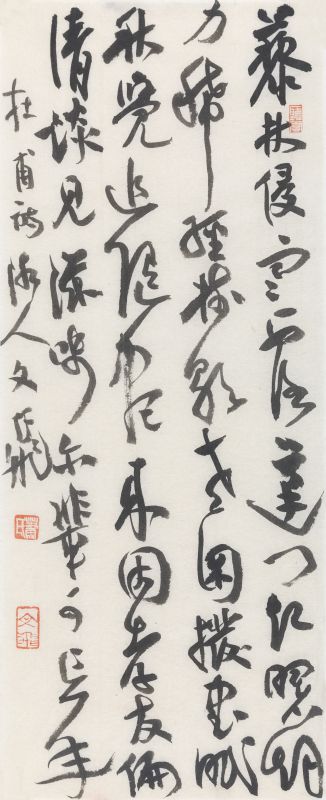 藜杖侵寒露蓬門啟曙烟
力稀經樹歇老困撥書眠
秋覺追隨盡來因孝友偏
清談見滋味爾輩可忘年
杜甫詩 人文